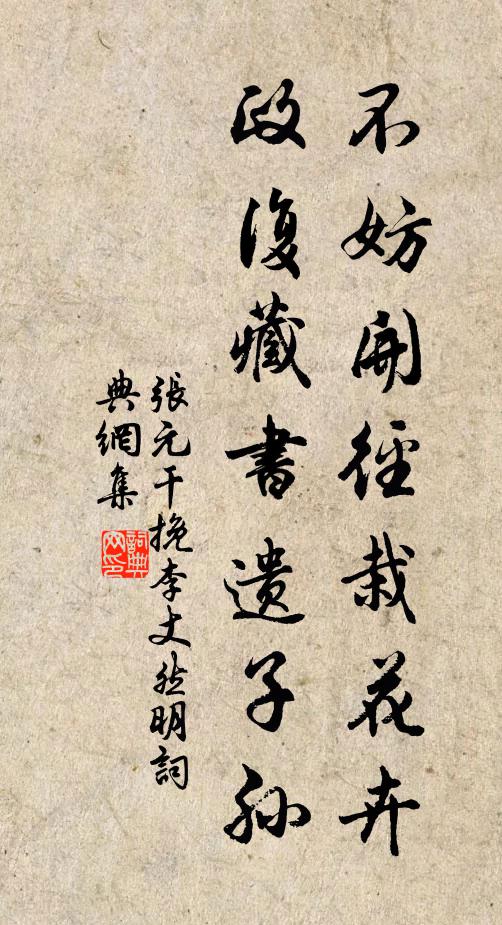 不妨開徑栽花卉
政復藏書遺子孫
張元干挽李丈然明詞
典網集
詞典網印